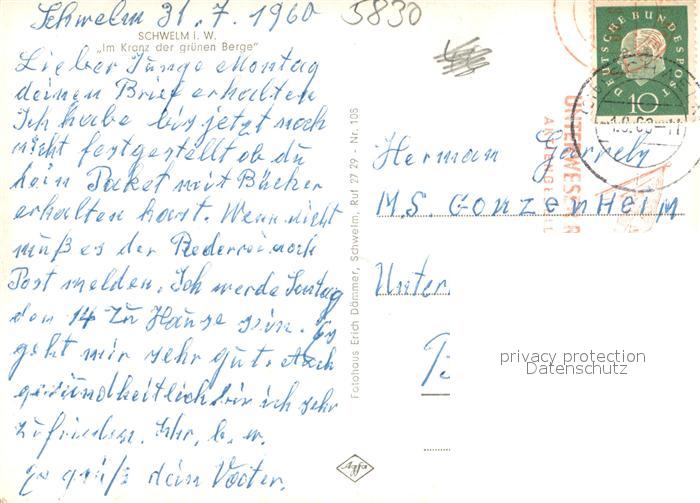 Schwelm 31.7.1960
5830
SCHWELM i. W.
„Im Kranz der grünen Berge"
Lieber Junge Montag
deinen Brief erhalten
Ich habe bis jetzt noch
nicht festgestellt ob du
kein Paket mit Bücher
erhalten hast. Wenn nicht
muß es der Rederrei noch
Post melden. Ich werde Sontag
den 14 zu Hause sein. Es
geht mir sehr gut. Auch
gesundheitlich bin ich sehr
zufrieden.
es grüß dein Vater.
Fotohaus Erich Dämmer, Schwelm, Ruf 27 29 - Nr. 105
Agfa
DEUTSCHE BUNDESPOST
10
UNTERWESER
Herman
M.S. Gonzenheim
Unter
privacy protection
Datenschutz